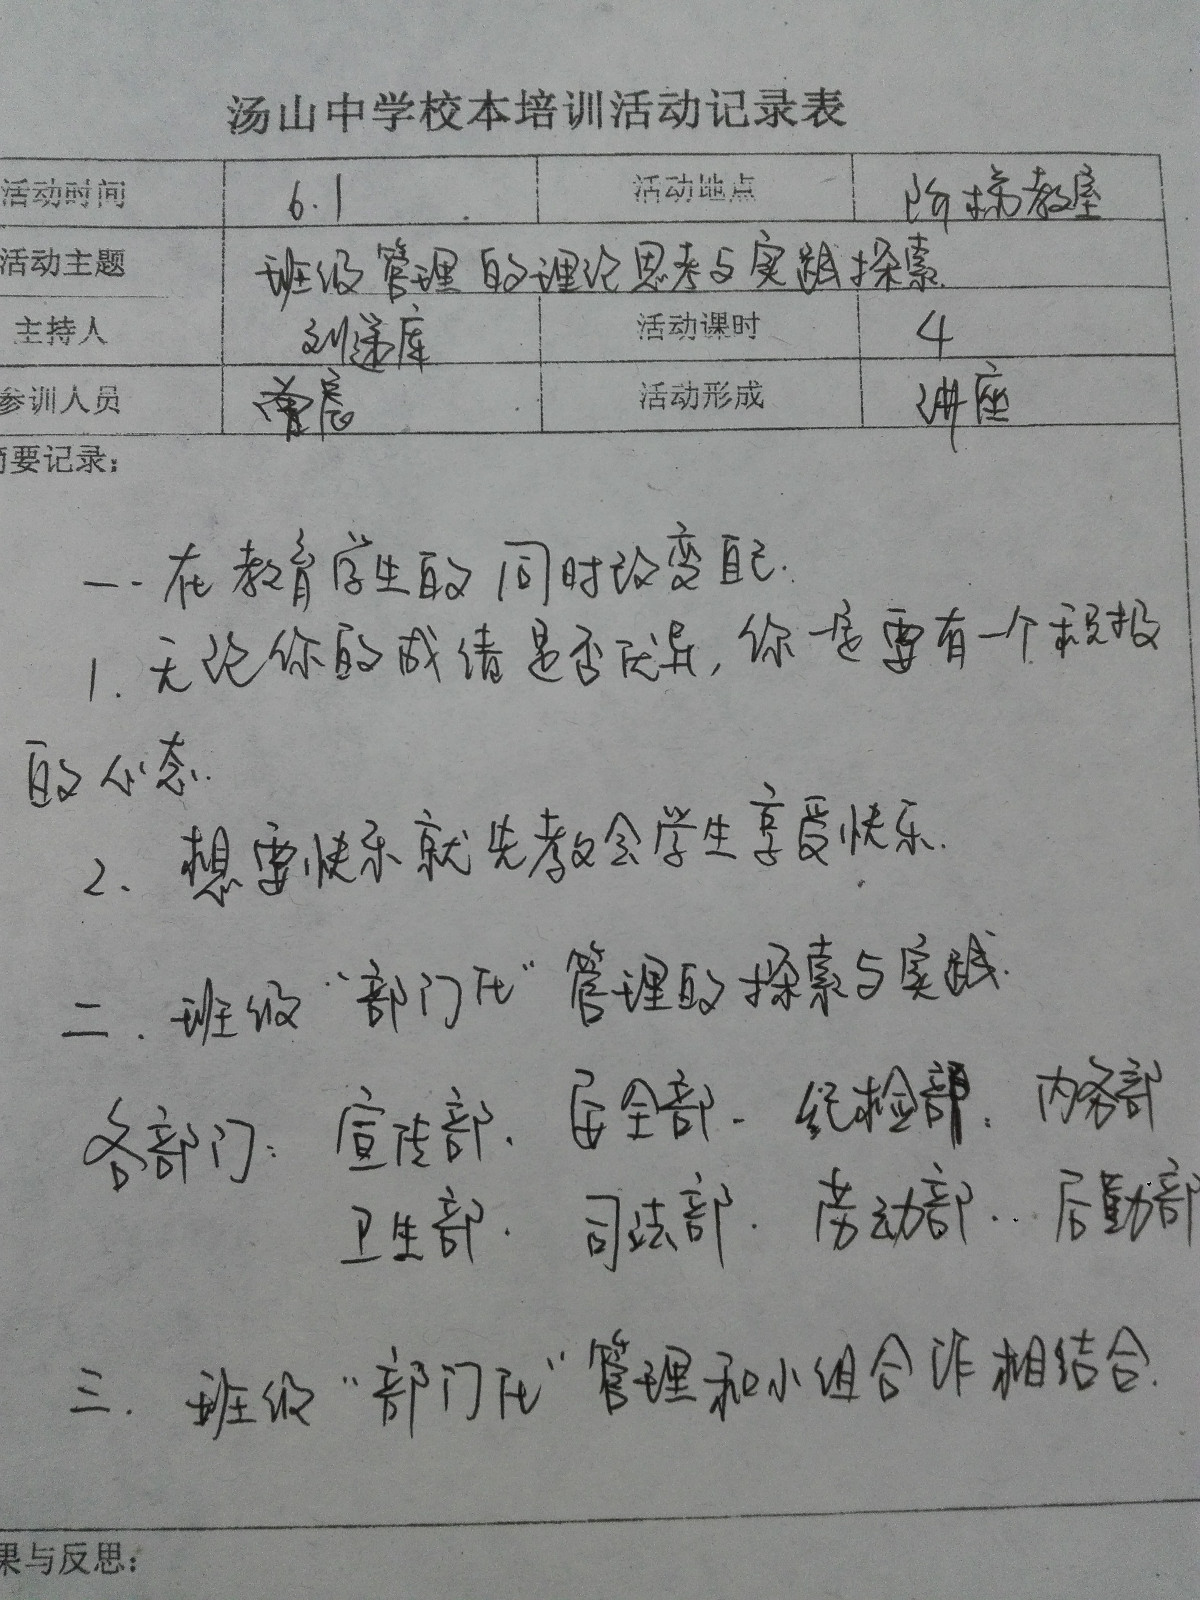 汤山中学校本培训活动记录表
活动时间 6.1 活动地点 阶梯教室
活动主题 班级管理的理论思考与实践探索
主持人 刘 库 活动课时 4
参训人员 曾宸 活动形成 讲座
简要记录：
一.在教育学生的同时改变自己.
1.无论你的成绩是否优异,你一定要有一个积极
的心态.
2、想要快乐就先教会学生享受快乐.
二.班级“部门化”管理的探索与实践.
各部门：宣传部、安全部、纪检部、内务部
卫生部、司法部、劳动部、后勤部
三.班级“部门化”管理和小组合作相结合.
果与反思：